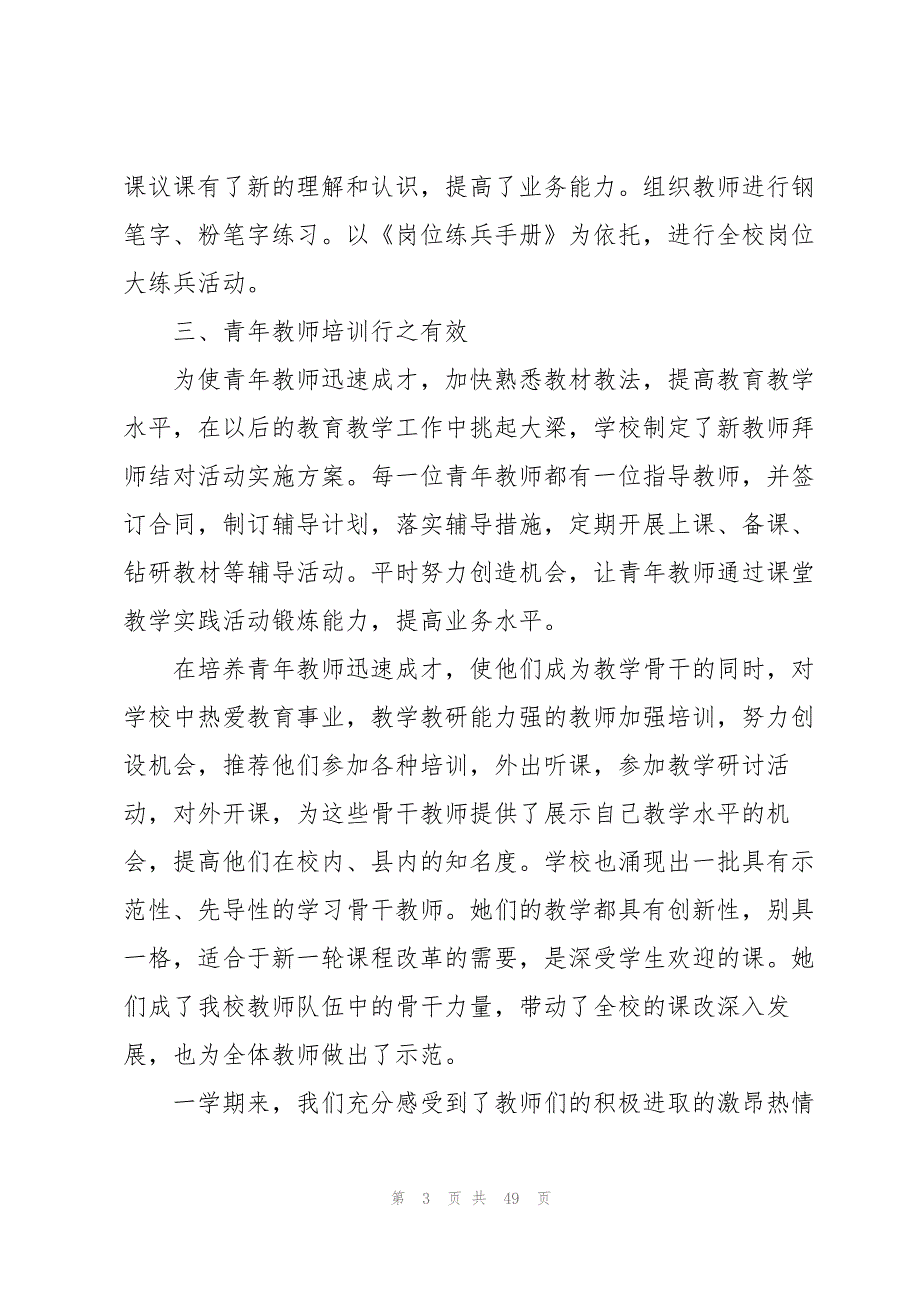 课议课有了新的理解和认识，提高了业务能力。组织教师进行钢
笔字、粉笔字练习。以《岗位练兵手册》为依托，进行全校岗位
大练兵活动。
三、青年教师培训行之有效
为使青年教师迅速成才，加快熟悉教材教法，提高教育教学
水平，在以后的教育教学工作中挑起大梁，学校制定了新教师拜
师结对活动实施方案。每一位青年教师都有一位指导教师，并签
订合同，制订辅导计划，落实辅导措施，定期开展上课、备课、
钻研教材等辅导活动。平时努力创造机会，让青年教师通过课堂
教学实践活动锻炼能力，提高业务水平。
在培养青年教师迅速成才，使他们成为教学骨干的同时，对
学校中热爱教育事业，教学教研能力强的教师加强培训，努力创
设机会，推荐他们参加各种培训，外出听课，参加教学研讨活
动，对外开课，为这些骨干教师提供了展示自己教学水平的机
会，提高他们在校内、县内的知名度。学校也涌现出一批具有示
范性、先导性的学习骨干教师。她们的教学都具有创新性，别具
一格，适合于新一轮课程改革的需要，是深受学生欢迎的课。她
们成了我校教师队伍中的骨干力量，带动了全校的课改深入发
展，也为全体教师做出了示范。
一学期来，我们充分感受到了教师们的积极进取的激昂热情
第 3 页 共 49 页